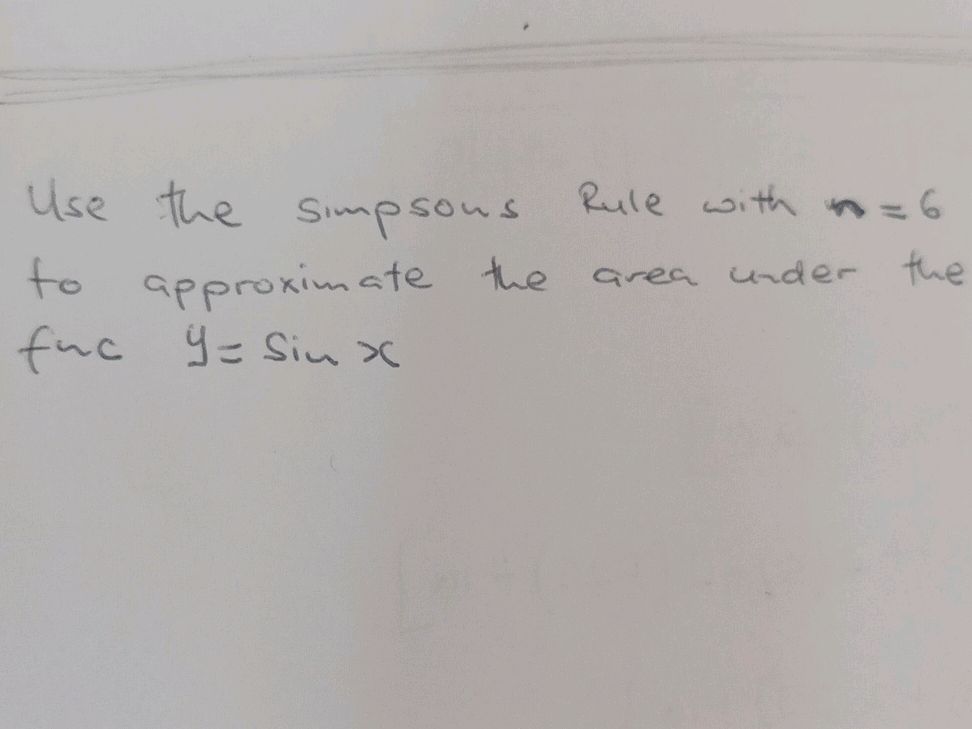 Use the simpsons Rule with n = 6
to approximate the area under the
fnc y = Sin x